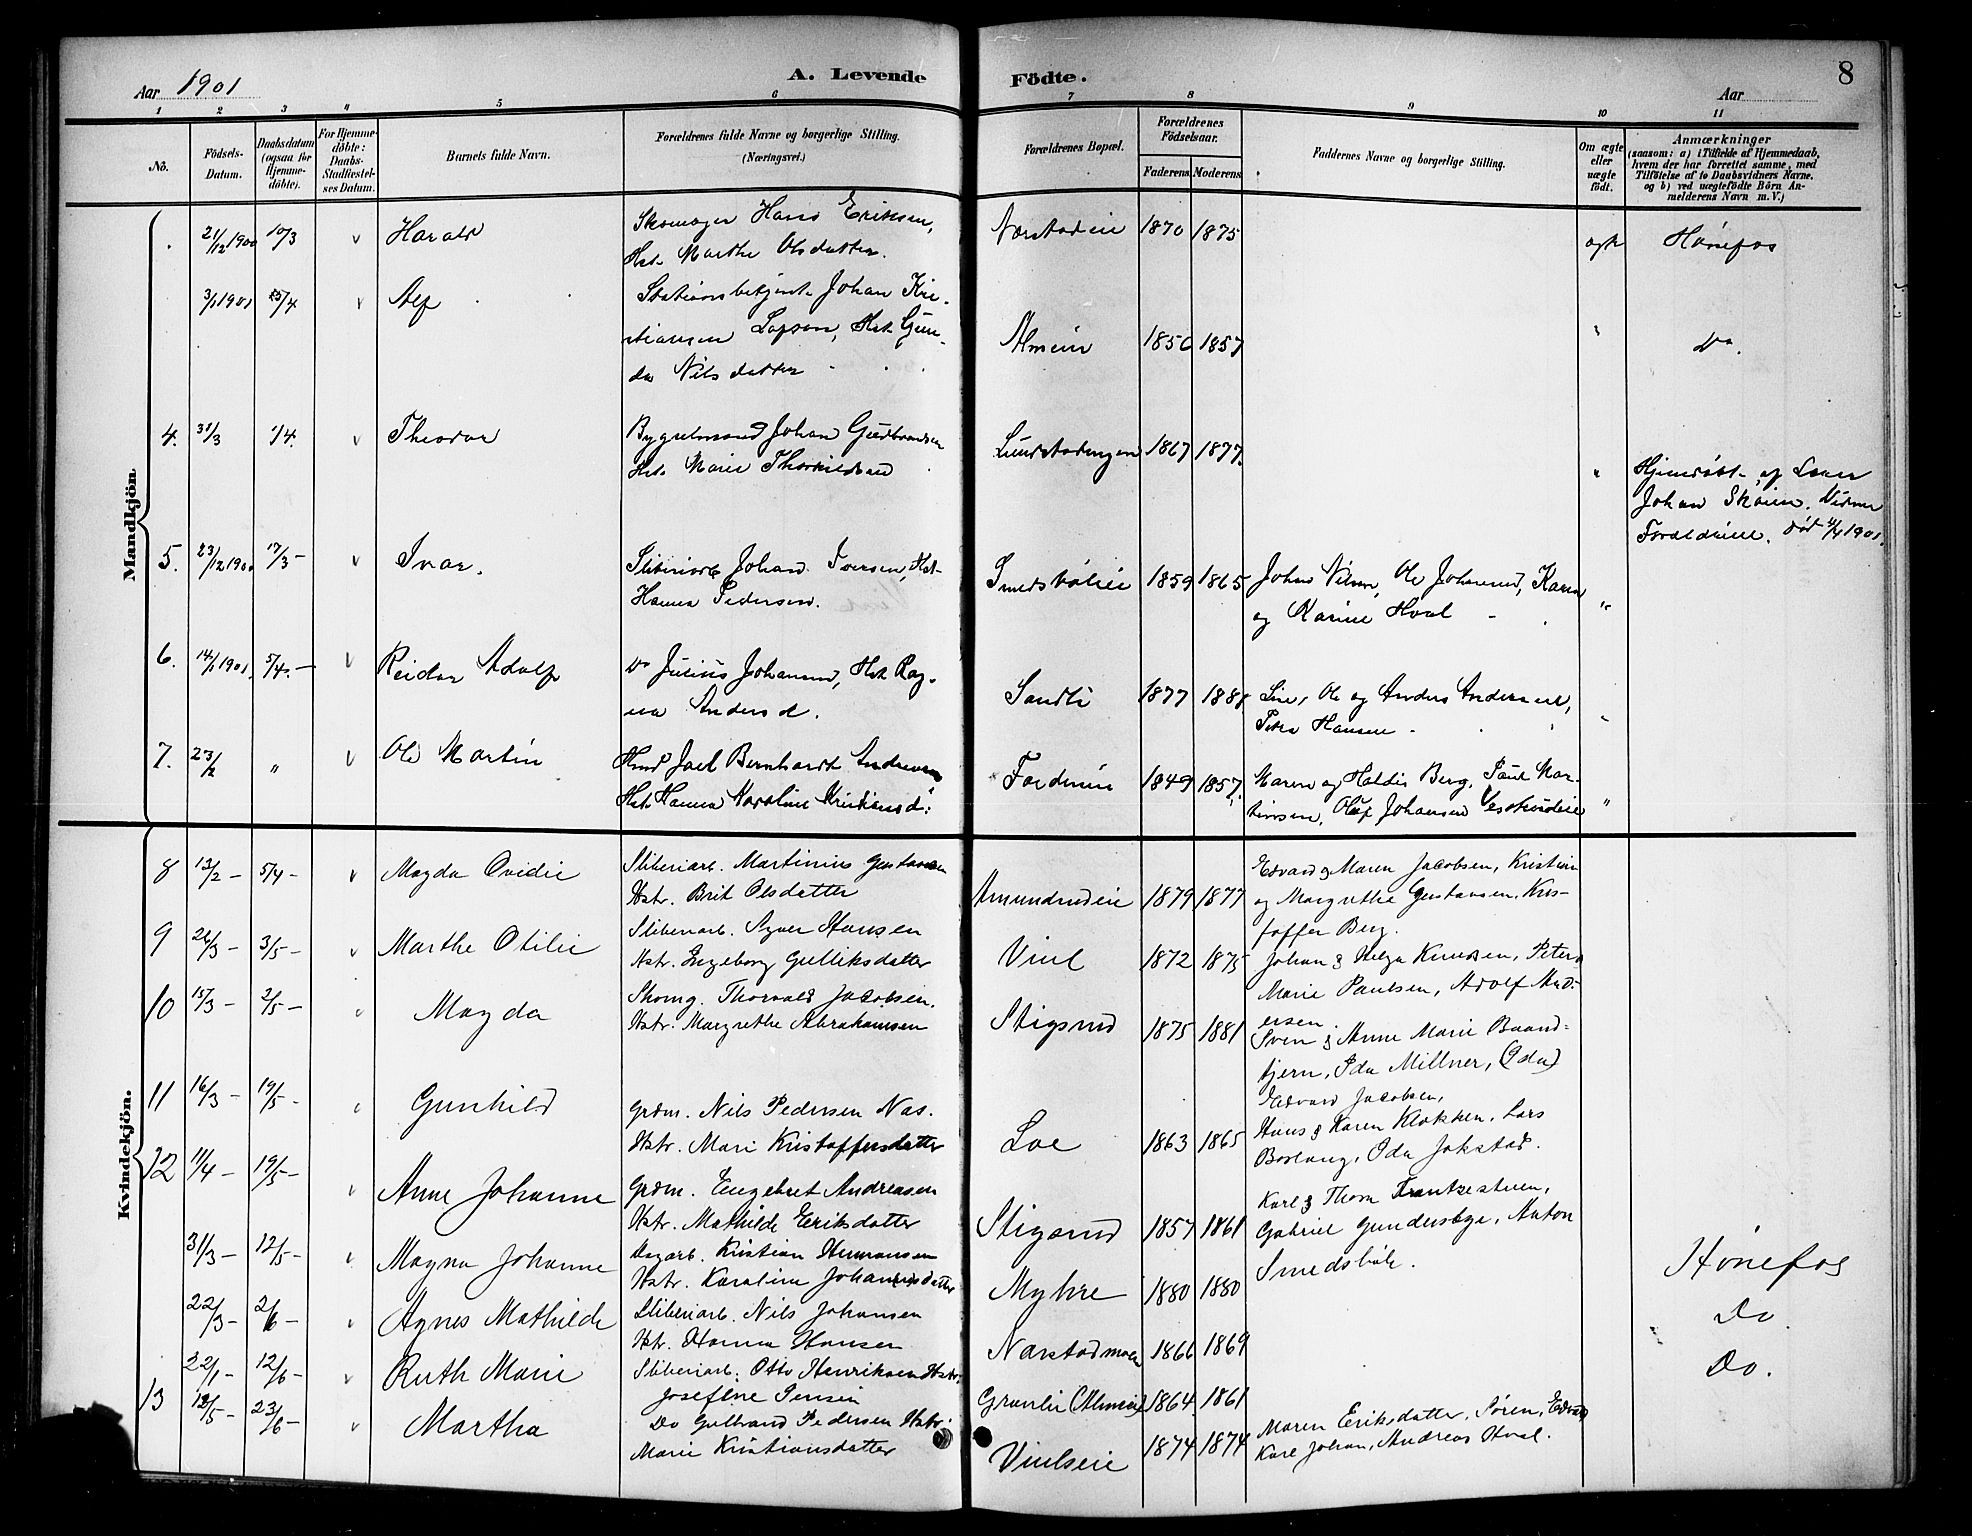 Aar 1901
A. Levende
Födte.
Aar
8
1 2 3 4 5 6 7 8 9 10 11
No.
Födsels-
Datum.
Daabsdatum
(ogsaa for
Hjemme-
döbte).
For Hjemme-
döbte:
Daabs-
Stadfæstel-
ses Datum.
Barnets fulde Navn.
Forældrenes fulde Navne og borgerlige Stilling.
(Næringsvei.)
Forældrenes Bopæl.
Forældrenes
Födselsaar.
Faderens Moderens
Faddernes Navne og borgerlige Stilling.
Om ægte
eller
uægte
födt.
Anmærkninger
(saasom: a) i Tilfælde af Hjemmedaab,
hvem der har forrettet samme, med
Tilföielse af to Daabsvidners Navne.
og b) ved uægtefödte Börn An-
melderens Navn m. V.)
Mandkjön
21/12 1900 10/3 v Harald
Skomager Hans Eriksen,
Hst. Marthe Olsdatter.
Nærstadeie 1870 1875 ægte Hönefos
3/1 1901 25/4 v Alf
Stationsbetjent Johan Kri-
stiansen Lofsen, Hst. Gun-
da Nilsdatter
Almeie 1850 1857 " Do.
4. 31/3 1/4. v Theodor
Bygselmand Johan Gudbrandsen
Hst. Marie Thorkildsen
Lundstadengen 1867 1877. "
Hjemdöbt af Læser
Johan Skóien. Vidner
Forældrene. död 4/4 1901.
5. 23/12 1900 17/3 - v Ivar.
Sliberiarb Johan Iversen, Hst.
Hanna Pedersen.
Smedsböleie 1859 1865
Johns Nilsen, Ole Johannesd, Karen
og Karine Hval "
6. 14/1 1901 5/4. - v Reidar Adolf
Do Julius Johansen, Hst. Rag-
na Andersd.
Sandli 1877 1881
Line, Ole og Anders Andersen,
Petra Hansen
7. 23/2 " v Ole Martin
Hmd Joel Bernhardt Andersen
Hst. Hanna Karoline Kristiansd.
Fordeneie 1849 1857.
Maren og Haldis Berg, Paul Mar-
tinsen, Oluf Johansen "
Kvindekjön.
8 13/2 - 5/4 - v Magda Ovidie
Sliberiarb. Martinius Gustavsen
Hstr. Brit Olsdatter
Amundrudeie 1879 1877
Edvard & Maren Jacobsen, Kristian
og Margrethe Gustavsen, Kris-
toffer Berg.
9 26/3 - 3/5 - v Marthe Otilie
Sliberiarb. Syver Hansen
Hstr. Engeborg Gulliksdatter
Viul 1872 1875
Johan & Helga Knudsen, Peter &
Marie Paulsen, Adolf And-
ersen.
10 15/3 - 2/5 - v Magda
Skomg. Thorvald Jacobsen.
Hstr. Margrethe Abrahamsen
Stigsrud 1875 1881
Sven & Anne Marie Baand-
tjern, Ida Millner, (Ida)
Edvard Jacobsen,
11 16/3 - 19/5 - v Gunhild
Grdm. Nils Pedersen Næs.
Hstr. Mari Kristoffersdatter
Loe 1863 1865
Hans & Karen Klokken, Lars
Borlaug, Oda Jokstad.
12 11/4 - 19/5 - v Anne Johanne
Grdm. Engebret Andreasen
Hstr. Mathilde Eriksdatter
Stigsrud 1857 1861
Karl & Thora Frantzestuen,
Gabriel Gundersbye, Anton
Smedsböle.
31/3 - 12/5 - v Magna Johanne
Dagarb. Kristian Hermansen
Hstr. Karoline Johannesdatter
Myhre 1880 1880 Hönefos
22/3 - 2/6 - v Agnes Mathilde
Sliberiarb. Nils Johansen
Hstr. Hanna Hansen
Narstadmoen 1866 1869 Do
22/1 - 12/6 - v Ruth Marie
Sliberiarb. Otto Henriksen Hstr.
Josefine Jensen
Granlie (Almeie) 1864 1861 Do.
13 12/5 - 23/6 - v Martha
Do Gulbrand Pedersen Hstr.
Marie Kristiansdatter
Viulseie 1874 1874
Maren Eriksdatter, Sören, Edvard
Karl Johan, Andreas Hval.